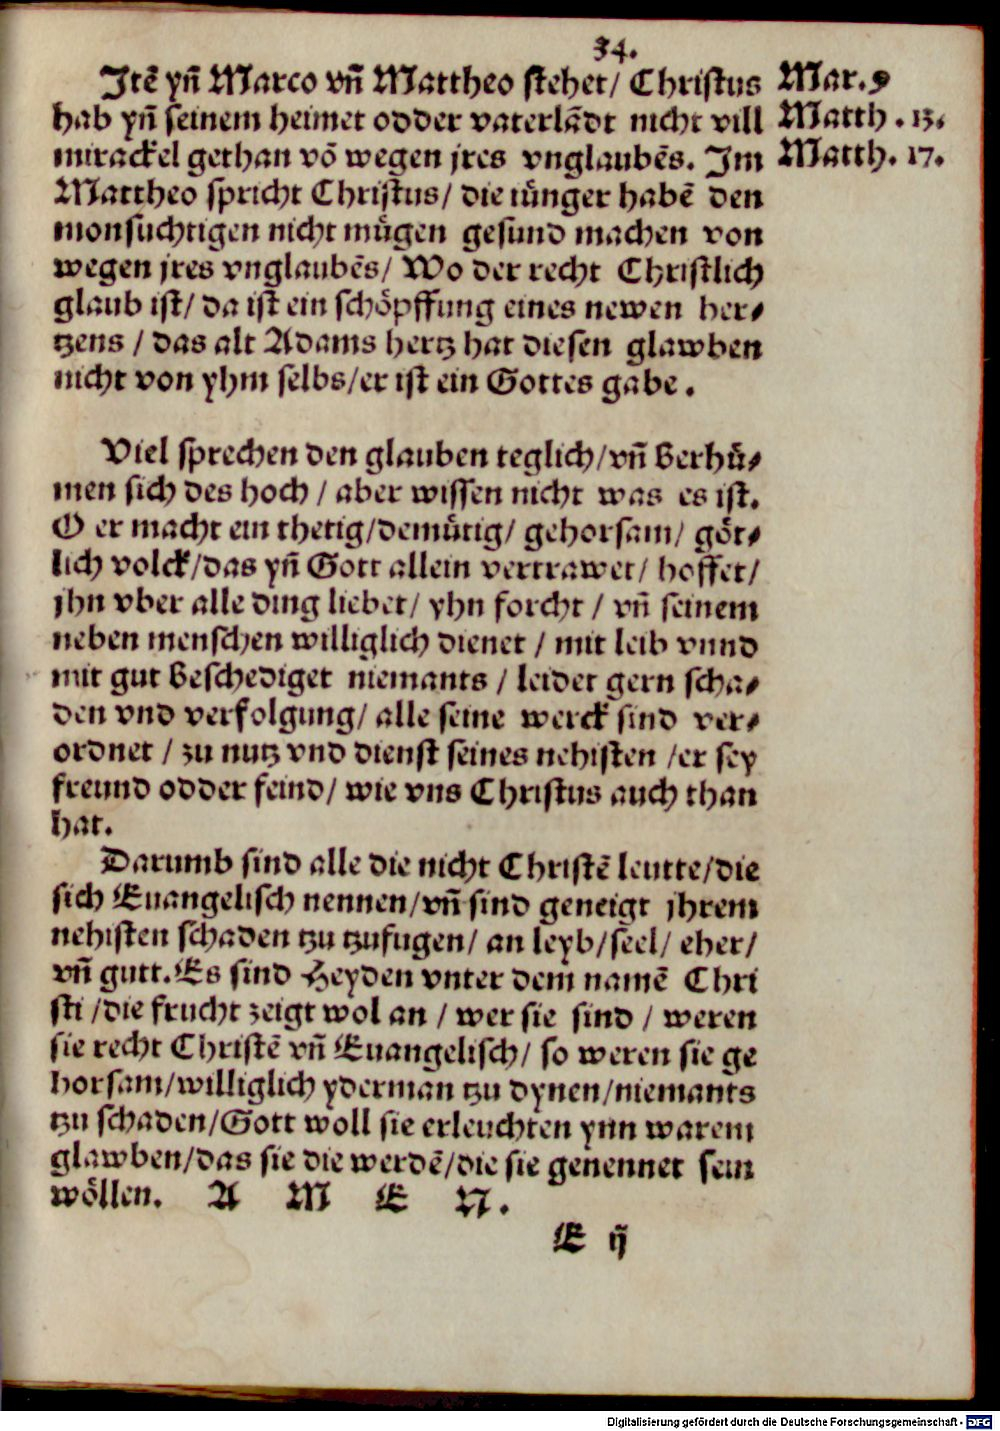 34.
Jtē yñ Marco vñ Mattheo stehet/ Christus Mar. 9
hab yñ seinem heimet odder vaterlādt nicht vill Matth. 13.
mirackel gethan vō wegen jres vnglaubēs. Jm Matth. 17.
Mattheo spricht Christus/ die iůnger habē den
monsuchtigen nicht můgen gesund machen von
wegen jres vnglaubēs/ Wo der recht Christlich
glaub ist/ da ist ein schöpffung eines newen her⸗
tzens / das alt Adams hertz hat diesen glawben
nicht von yhm selbs/er ist ein Gottes gabe.
Viel sprechen den glauben teglich/vñ berhů⸗
men sich des hoch / aber wissen nicht was es ist.
O er macht ein thetig/demůtig/ gehorsam/ göt⸗
lich volck/das yñ Gott allein vertrawet/ hoffet/
jhn vber alle ding liebet/ yhn forcht / vñ seinem
neben menschen williglich dienet / mit leib vnnd
mit gut beschediget niemants / leidet gern scha⸗
den vnd verfolgung/ alle seine werck sind ver⸗
ordnet / zu nutz vnd dienst seines nehisten /er sey
freund odder feind/ wie vns Christus auch than
hat.
Darumb sind alle die nicht Christē leutte/die
sich Euangelisch nennen/vñ sind geneigt jhrem
nehisten schaden tzu tzufugen/ an leyb/seel/ eher/
vñ gutt. Es sind Heyden vnter dem namē Chri
sti /die frucht zeigt wol an / wer sie sind / weren
sie recht Christē vñ Euangelisch/ so weren sie ge
horsam/williglich yderman tzu dynen/niemants
tzu schaden/Gott woll sie erleuchten ynn warem
glawben/das sie die werdē/die sie genennet sein
wöllen. A M E N.
E ij
Digitalisierung gefördert durch die Deutsche Forschungsgemeinschaft - DFG